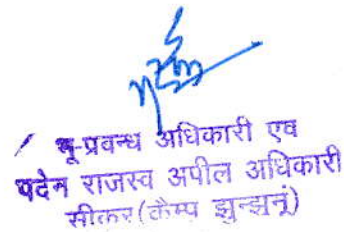 भू-प्रवन्ध अधिकारी एव
पदेन राजस्व अपील अधिकारी
सीकर(कैम्प झुन्झुनूं)